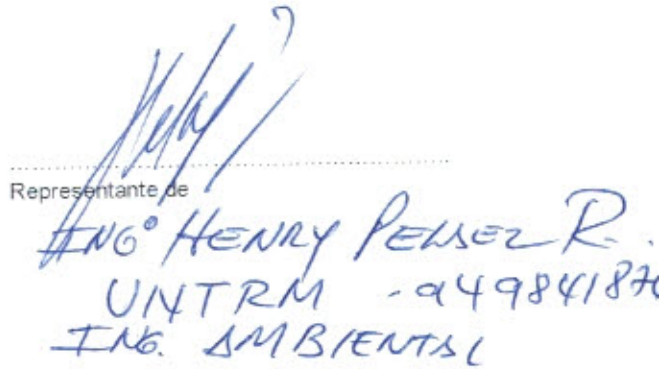 Representante de
ING° HENRY PELAEZ R.
UNTRM - 94984187
ING. AMBIENTAL